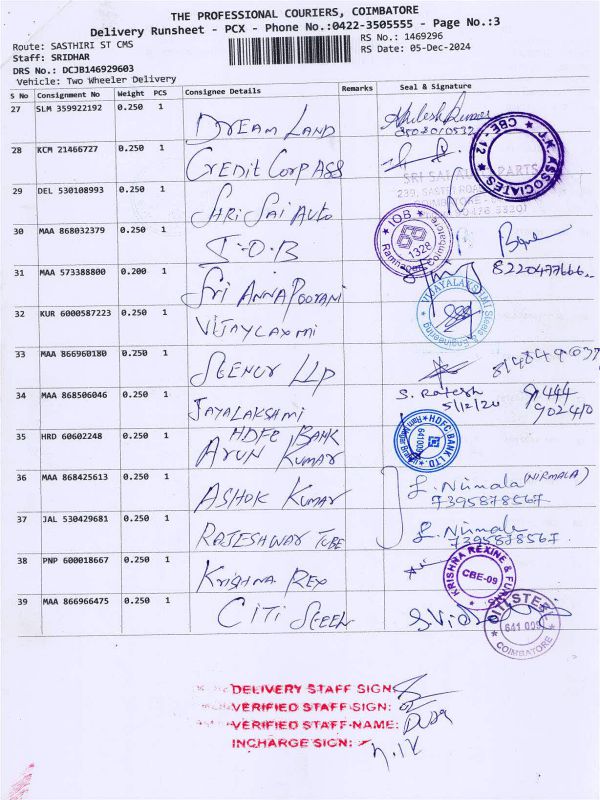 THE PROFESSIONAL COURIERS, COIMBATORE
Delivery Runsheet - PCX - Phone No.:0422-3505555 - Page No.:3
Route: SASTHIRI ST CMS
RS No.: 1469296
Staff: SRIDHAR
RS Date: 05-Dec-2024
DRS No.: DCJB146929603
Vehicle: Two Wheeler Delivery
S No Consignment No Weight PCS Consignee Details Remarks Seal & Signature
27 SLM 359922192 0.250 1 DREAM LAND
28 KCM 21466727 0.250 1 CREDIT CORP ASS
J.K. ASSOCIATES CBE - 12
29 DEL 530108993 0.250 1 SHRI SAI AUTO
30 MAA 868032379 0.250 1 I-O-B
IOB 1328 Ramnagar Coimbatore
31 MAA 573388800 0.200 1 SRI ANNAPOORANI 8220477666
32 KUR 6000587223 0.250 1 VIJAYLAXMI
VIJAYALAKSHMI Steels & Engineering
33 MAA 866960180 0.250 1 LLP
34 MAA 868506046 0.250 1 JAYALAKSHMI S. Ratesh
5/12/24
35 HRD 60602248 0.250 1 HDFC BANK
ARUN KUMAR
HDFC BANK LTD.
36 MAA 868425613 0.250 1 ASHOK KUMAR L. Nirmala (NIRMALA)
7395878567
37 JAL 530429681 0.250 1 RAJESHWAR TUBE L. Nirmala
7395878567
38 PNP 600018667 0.250 1 KRISHNA REX
KRISHNA REXINE & FURNS CBE-09
39 MAA 866966475 0.250 1 CITI STEEL
641 009 COIMBATORE
DELIVERY STAFF SIGN:
VERIFIED STAFF SIGN:
VERIFIED STAFF NAME:
INCHARGE SIGN: